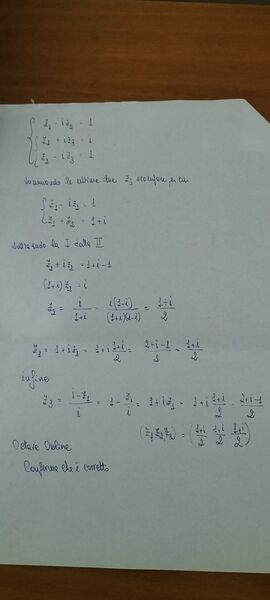 z₁ - iz₂ = 1
z₁ + iz₃ = 1
z₂ - iz₃ = 1
sommando le ultime due z₃ scompare, per cui
z₁ - iz₂ = 1
z₁ + z₂ = 1+i
sottraendo la I dalla II
z₂ + iz₂ = 1+i-1
(1+i) z₂ = i
z₂ = i/(1+i) = i(1-i)/((1+i)(1-i)) = (1+i)/2
z₁ = 1+iz₂ = 1+i (1+i)/2 = (2+i-1)/2 = (1+i)/2
infine
= 1+i (1+i)/2 = (2+i-1)/2
(z₁ z₂ z₃) = ((1+i)/2 (1+i)/2 (1+i)/2)
Octave Online
Conferma che è corretto